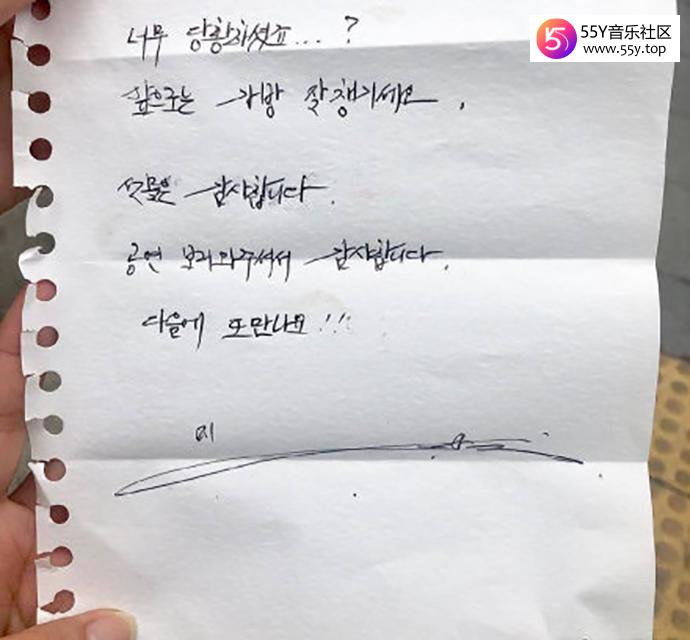 55Y音乐社区
www.55y.top
너무 당황하셨죠... ?
앞으로는 가방 잘 챙기세요.
선물은 감사합니다.
공연 보러와주셔서 감사합니다.
다음에 또 만나요!!!